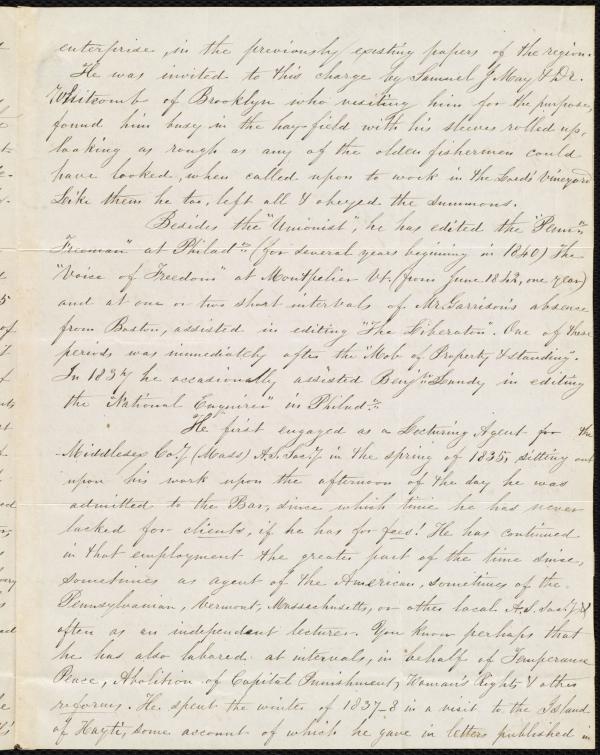 enterprise, in the previously existing papers of the region.
He was invited to this charge by Samuel J May & Dr.
Whitcomb of Brooklyn who visiting him for the purpose,
found him busy in the hay-field with his sleeves rolled up,
looking as rough as any of the olden fishermen could
have looked, when called upon to work in the Lord's Vineyard
Like them he too, left all & obeyed the summons.
Besides the "Unionist", he has edited the "Penn.
Freeman" at Philad. (for several years begining in 1840) The
"Voice of Freedom" at Montpelier Vt. (from June 1842, one year)
and at one or two short intervals of Mr. Garrison's absence
from Boston, assisted in editing "The Liberator". One of these
periods was immediately after the "Mob of Property & standing".
In 1837 he occasionally assisted Benj. Lundy in editing
the "National Enquirer" in Philad.
He first engaged as a Lecturing Agent for the
Middlesex Co.y (Mass) A.S. Soc.y in the spring of 1835, sitting out
upon his work upon the afternoon of the day he was
admitted to the Bar, since which time he has never
lacked for clients, if he has for fees! He has continued
in that employment the greater part of the time since,
sometimes as agent of the American, sometimes of the
Pennsylvanian, Vermont, Massachusetts, or other local A.S. Soc.y &
often as an independent lecturer. You know perhaps that
he has also labored at intervals, in behalf of Temperance
Peace, Abolition of Capital Punishment, Woman's Rights & other
reforms. He spent the winter of 1837-8 in a visit to the Island
of Hayti, some account of which he gave in letters published in